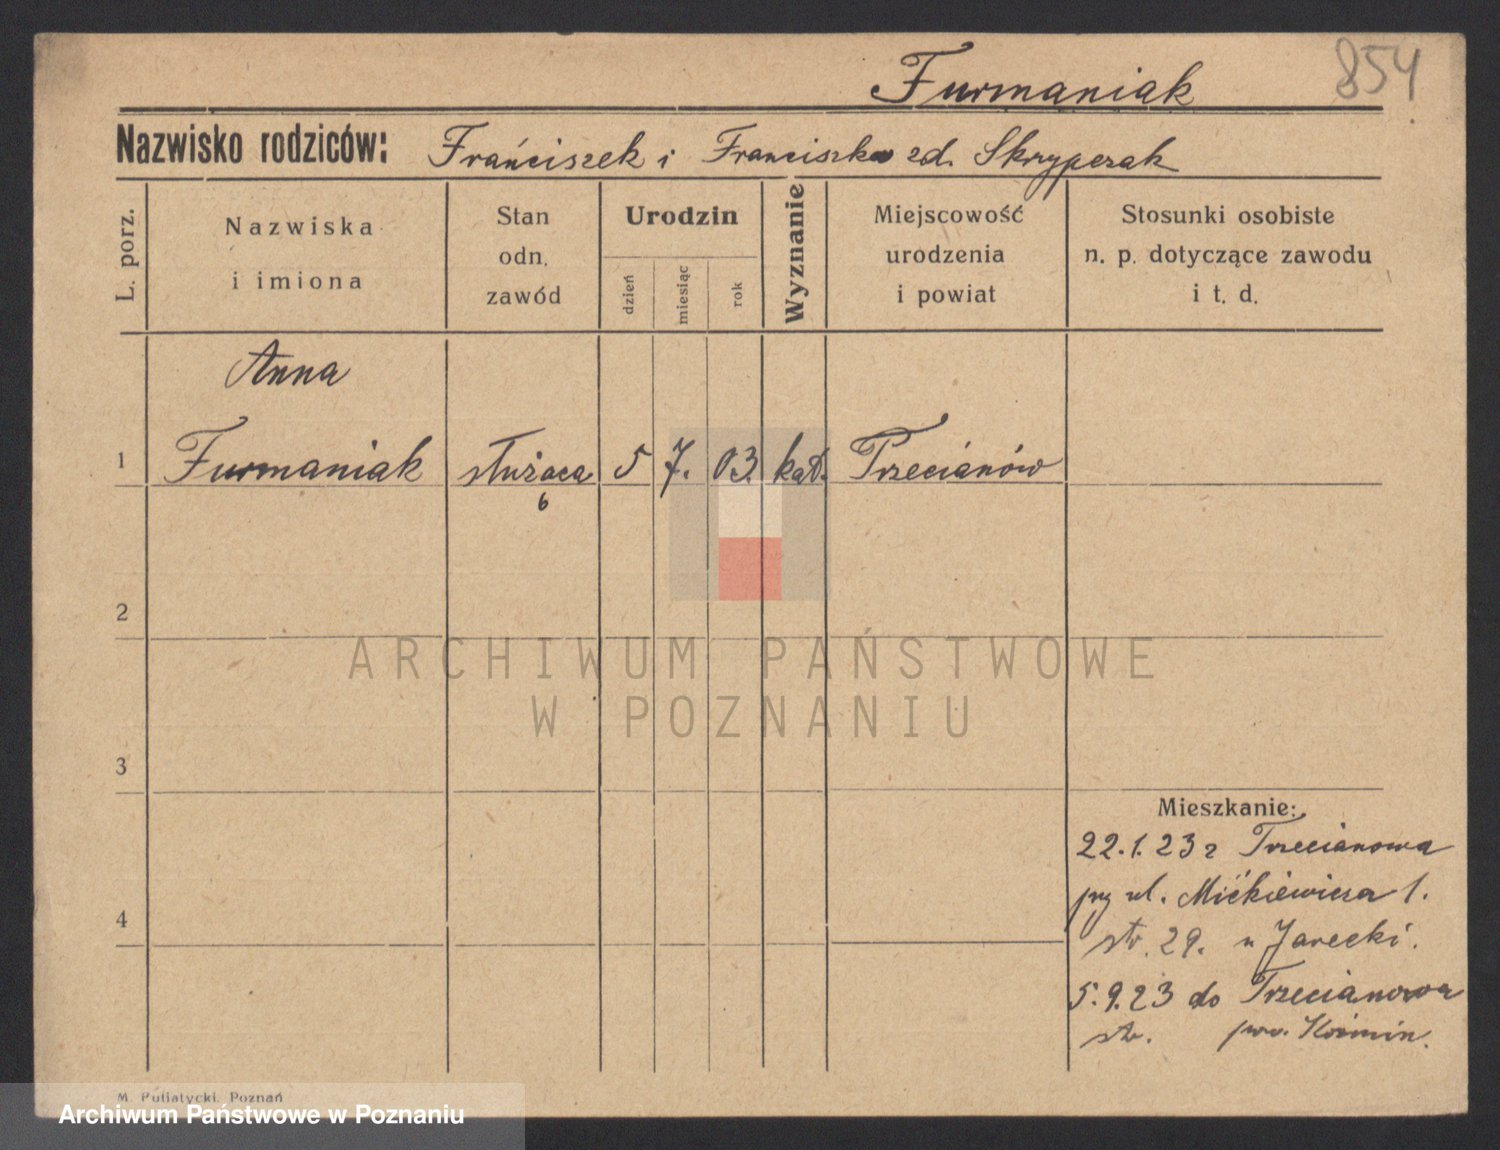 854
Furmaniak
Nazwisko rodziców: Franciszek i Franciszka zd. Skrzypczak
L. porz.
Nazwiska
i imiona
Stan
odn.
zawód
Urodzin
dzień
miesiąc
rok
Wyznanie
Miejscowość
urodzenia
i powiat
Stosunki osobiste
n. p. dotyczące zawodu
i t. d.
Anna
1 Furmaniak służąca 5 7. 03. kat. Trzecianów
6
2
3
4
Mieszkanie:
22.1.23 z Trzecianowa
przy ul. Mickiewicza 1.
str. 29. u Jarecki.
5.9.23 do Trzecianowa
str. pow. Koźmin.
M. Putiatycki. Poznań
ARCHIWUM PAŃSTWOWE
W POZNANIU
Archiwum Państwowe w Poznaniu